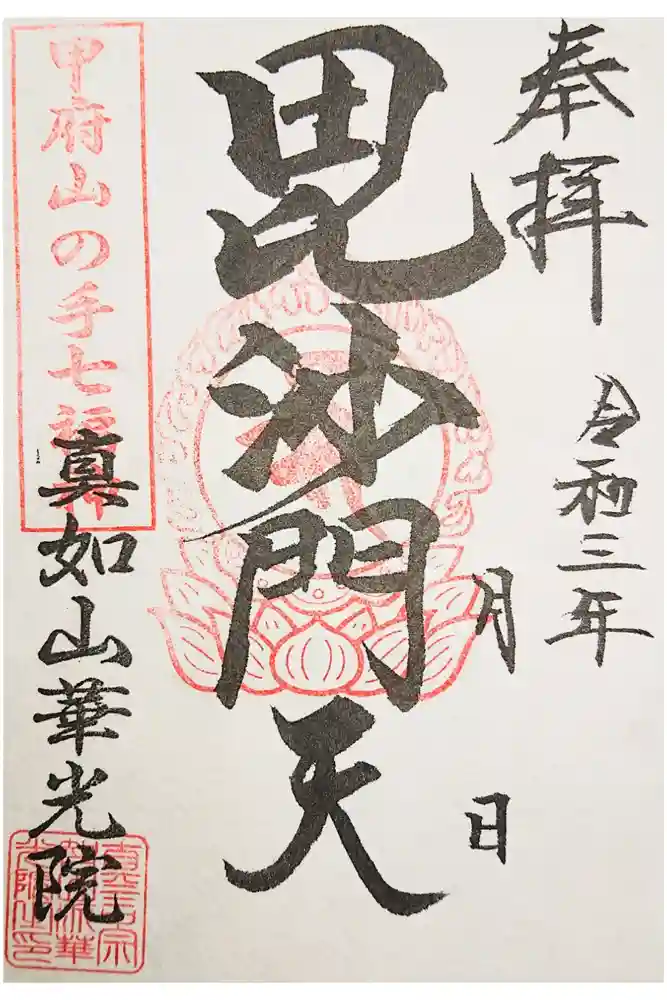 奉拝
令和三年
月 日
毘沙門天
甲府山の手七福神
真如山華光院